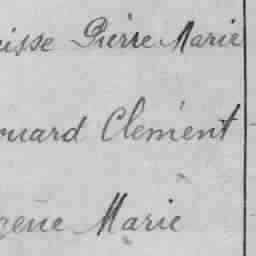 isse Pierre Marie
ouard Clément
gene Marie